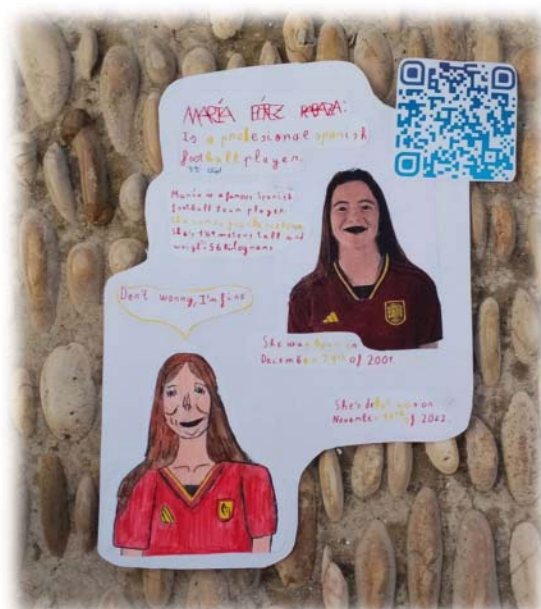 MARÍA PÉREZ RABAZA:
Is a profesional spanish
football player.
María is a famous Spanish
football team player.
She
She's meters tall and
weight 56 kilograms
Don't worry, I'm fine
She was born in
December 24th of 2001
She's debut was on
November of 2022.